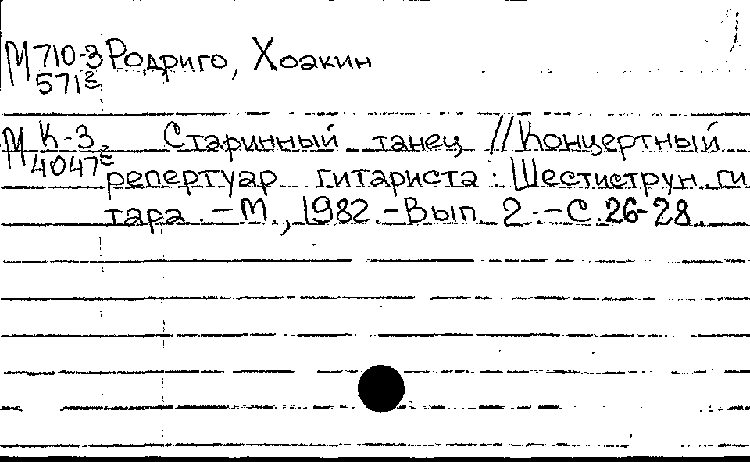 М 710-3 Родриго, Хоакин
571г
М К-3 Старинный танец // Концертный
4047г репертуар гитариста : Шестиструн. ги
тара. – М., 1982. – Вып. 2. – С. 26-28.